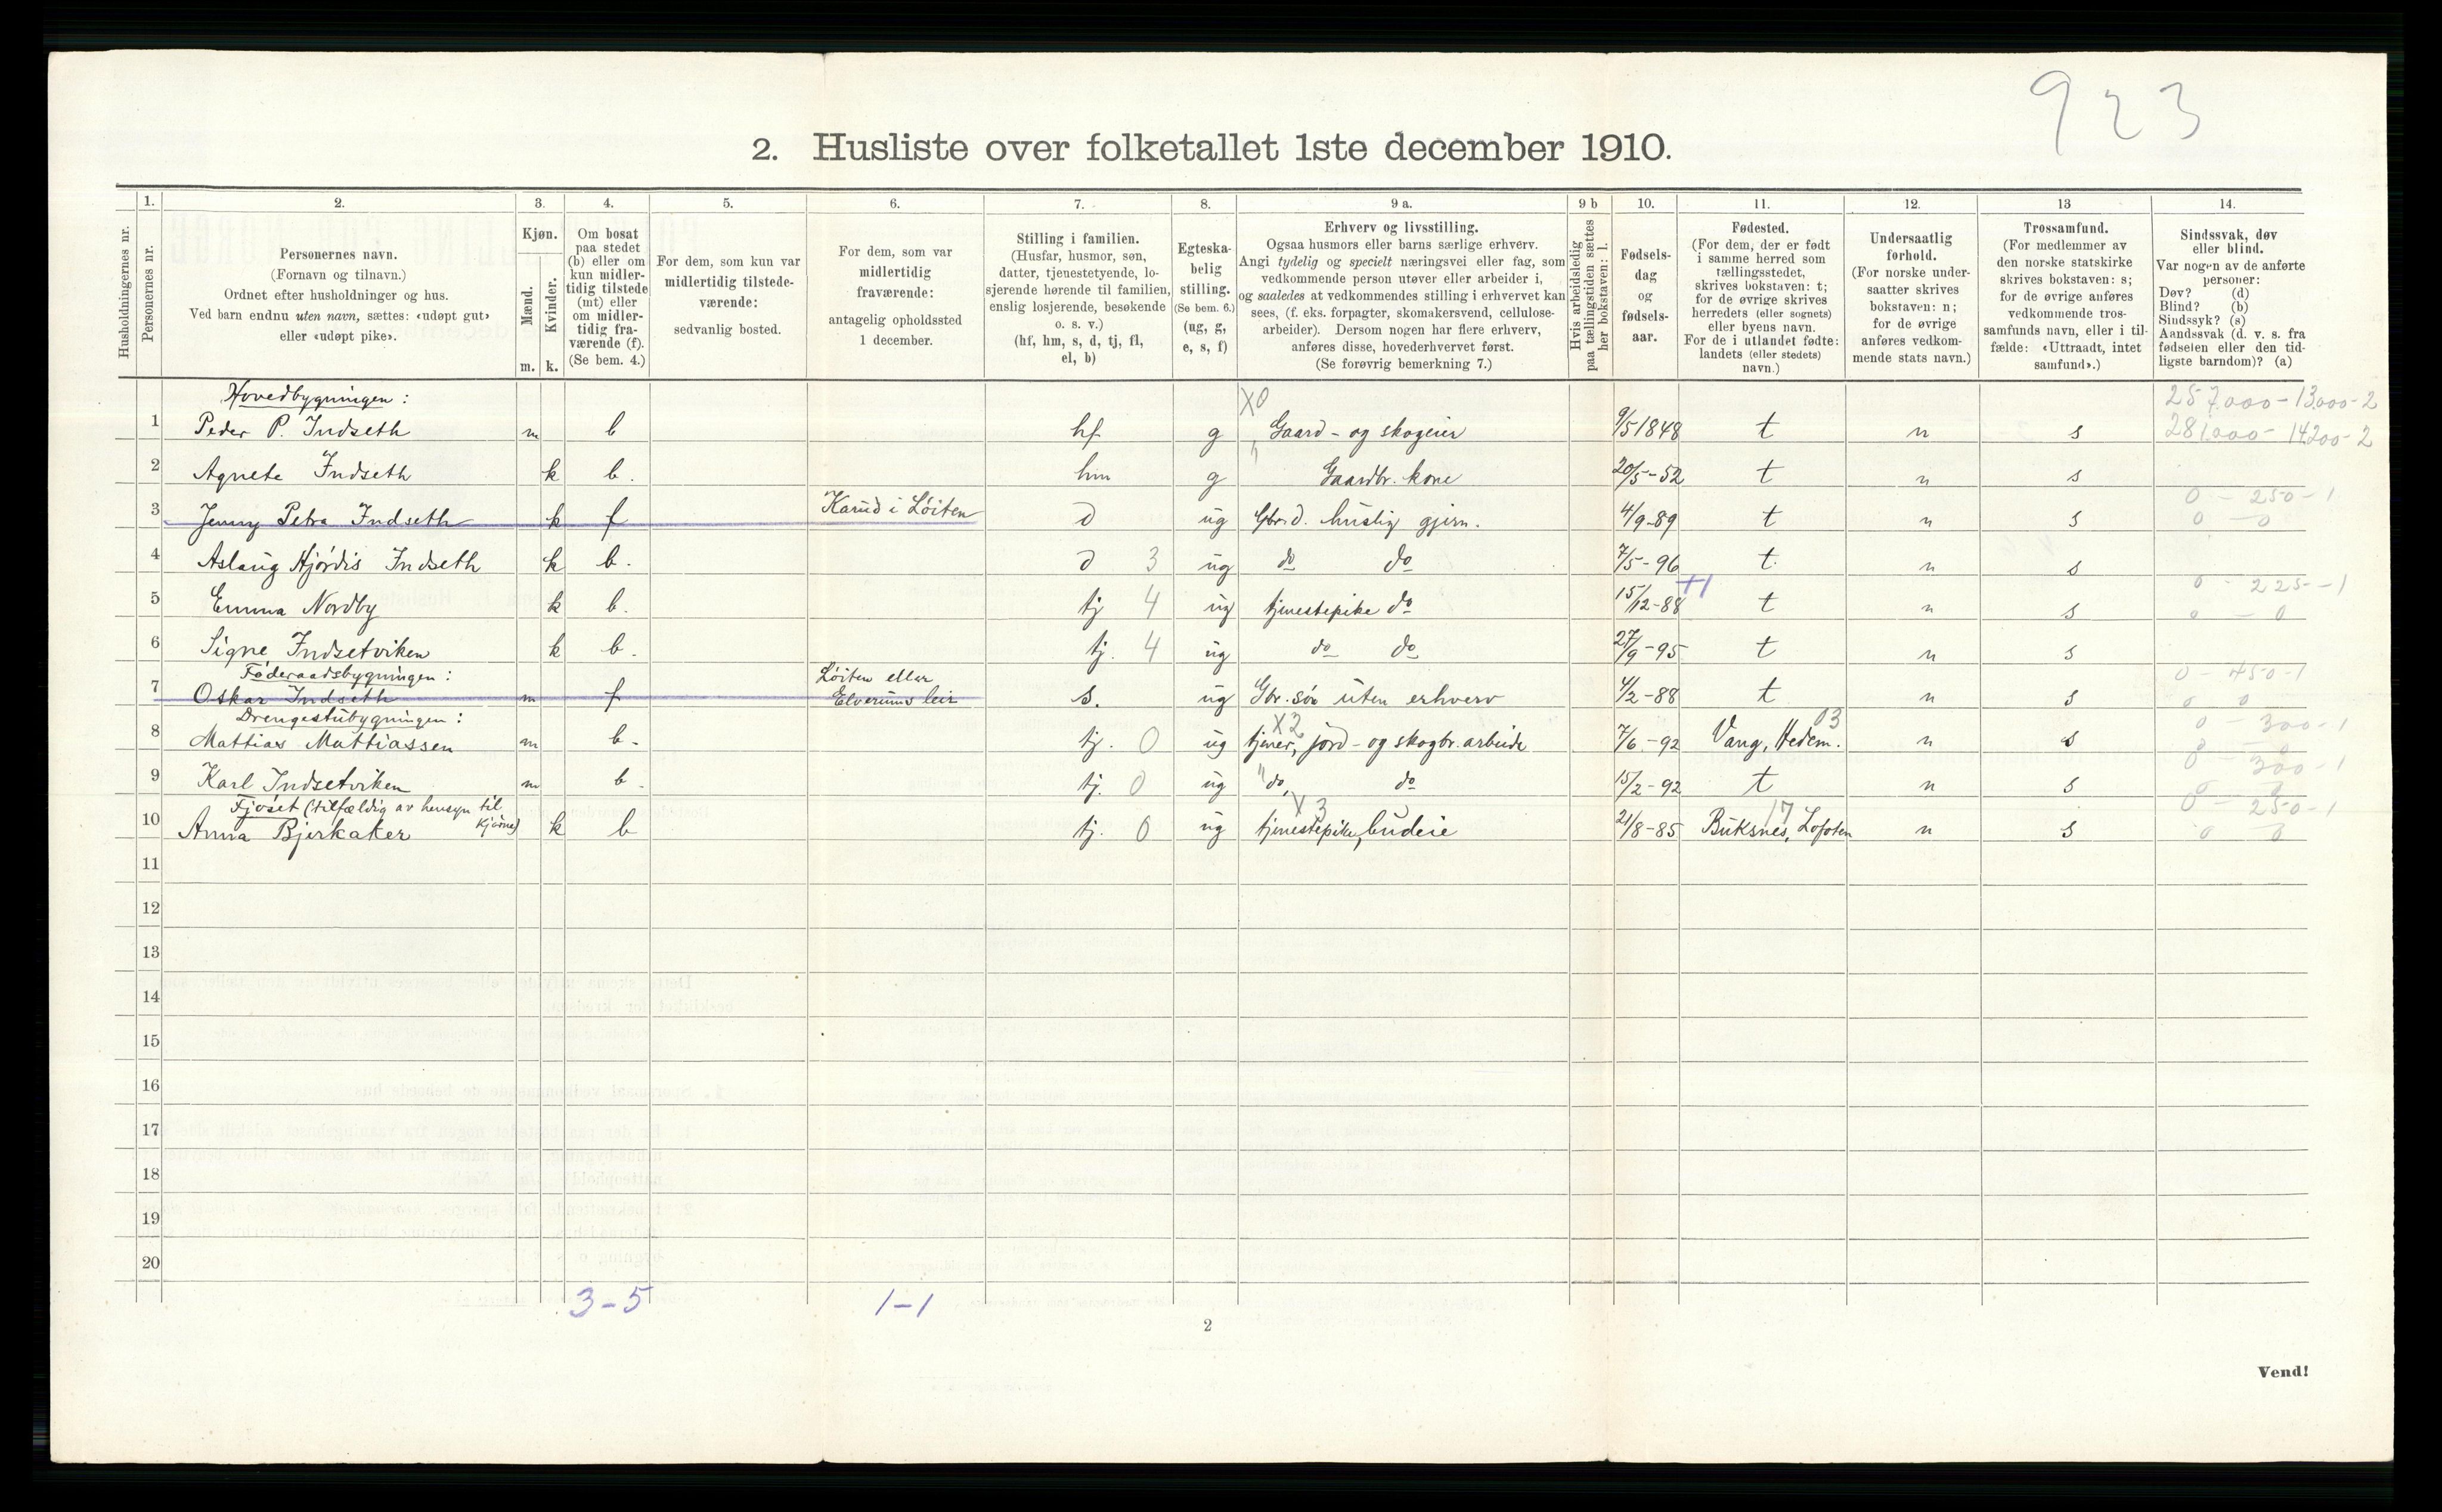 923
2. Husliste over folketallet 1ste december 1910.
Husholdningernes nr.
1. Personernes nr.
2. Personernes navn. (Fornavn og tilnavn.) Ordnet efter husholdninger og hus. Ved barn endnu uten navn, sættes: «udøpt gut» eller «udøpt pike».
3. Kjøn. Mænd. m. Kvinder. k.
4. Om bosat paa stedet (b) eller om kun midlertidig tilstede (mt) eller om midlertidig fraværende (f). (Se bem. 4.)
5. For dem, som kun var midlertidig tilstedeværende: sedvanlig bosted.
6. For dem, som var midlertidig fraværende: antagelig opholdssted 1 december.
7. Stilling i familien. (Husfar, husmor, søn, datter, tjenestetyende, losjerende hørende til familien, enslig losjerende, besøkende o. s. v.) (hf, hm, s, d, tj, fl, el, b)
8. Egteskabelig stilling. (Se bem. 6.) (ug, g, e, s, f)
9 a. Erhverv og livsstilling. Ogsaa husmors eller barns særlige erhverv. Angi tydelig og specielt næringsvei eller fag, som vedkommende person utøver eller arbeider i, og saaledes at vedkommendes stilling i erhvervet kan sees, (f. eks. forpagter, skomakersvend, cellulosearbeider). Dersom nogen har flere erhverv, anføres disse, hovederhvervet først. (Se forøvrig bemerkning 7.)
9 b Hvis arbeidsledig paa tællingstiden sættes her bokstaven: l.
10. Fødselsdag og fødselsaar.
11. Fødested. (For dem, der er født i samme herred som tællingsstedet, skrives bokstaven: t; for de øvrige skrives herredets (eller sognets) eller byens navn. For de i utlandet fødte: landets (eller stedets) navn.)
12. Undersaatlig forhold. (For norske undersaatter skrives bokstaven: n; for de øvrige anføres vedkommende stats navn.)
13 Trossamfund. (For medlemmer av den norske statskirke skrives bokstaven: s; for de øvrige anføres vedkommende trossamfunds navn, eller i tilfælde: «Uttraadt, intet samfund».)
14. Sindssvak, døv eller blind. Var nogen av de anførte personer: Døv? (d) Blind? (b) Sindssyk? (s) Aandssvak (d. v. s. fra fødselen eller den tidligste barndom)? (a)
Hovedbygningen: X0 257.000-13.000-2
1 Peder P. Indseth m b hf g Gaard- og skogeier 9/5 1848 t n s 281.000-14200-2
2 Agnete Indseth k b. hm g Gaardbr. kone 20/5-52 t n s
0-250-1
3 Jenny Petra Indseth k f Karud i Løiten d ug Gbr.d. huslig gjern. 4/9-89 t n s 0-0
4 Aslaug Hjördis Indseth k b. d 3 ug do do 7/5-96 t. n s
+1 0-225-1
5 Emma Nordby k b. tj 4 ug tjenestepike do 15/12-88 t n s 0-0
6 Signe Indsetviken k b. tj. 4 ug do do 27/9-95 t n s
Føderaadsbygningen: 0-450-1
7 Oskar Indseth m f Løiten eller Elverums leir s. ug Gbr. søn uten erhverv 4/2-88 t n s 0 0
Drengestubygningen: X2 03 0-300-1
8 Mattias Mattiassen m b. tj. 0 ug tjener, jord- og skogbr. arbeide 7/6-92 Vang, Hedem. n s 0 0
0-300-1
9 Karl Indsetviken m b. tj. 0 ug do, do 15/2-92 t n s 0 0
Fjøset (tilfældig av hensyn til kjørne) X3 17 0-250-1
10 Anna Bjerkaker k b tj. 0 ug tjenestepike, budeie 21/8-85 Buksnes, Lofoten n s 0 0
11
12
13
14
15
16
17
18
19
20
3-5 1-1
2
Vend!